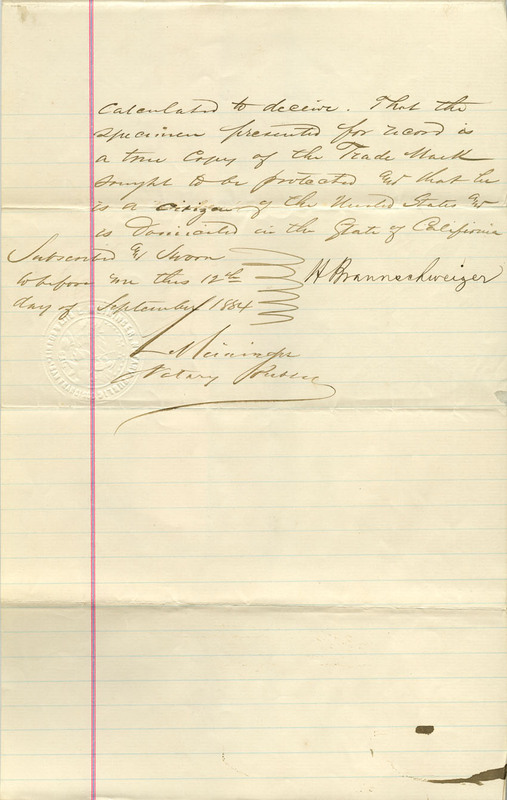 calculated to deceive. That the
specimen presented for record is
a true Copy of the Trade Mark
sought to be protected & that he
is a citizen of the United States &
is Domiciled in the State of California
Subscribed & Sworn
to before me this 12th
day of September 1884
H Braunschweiger
Notary Public